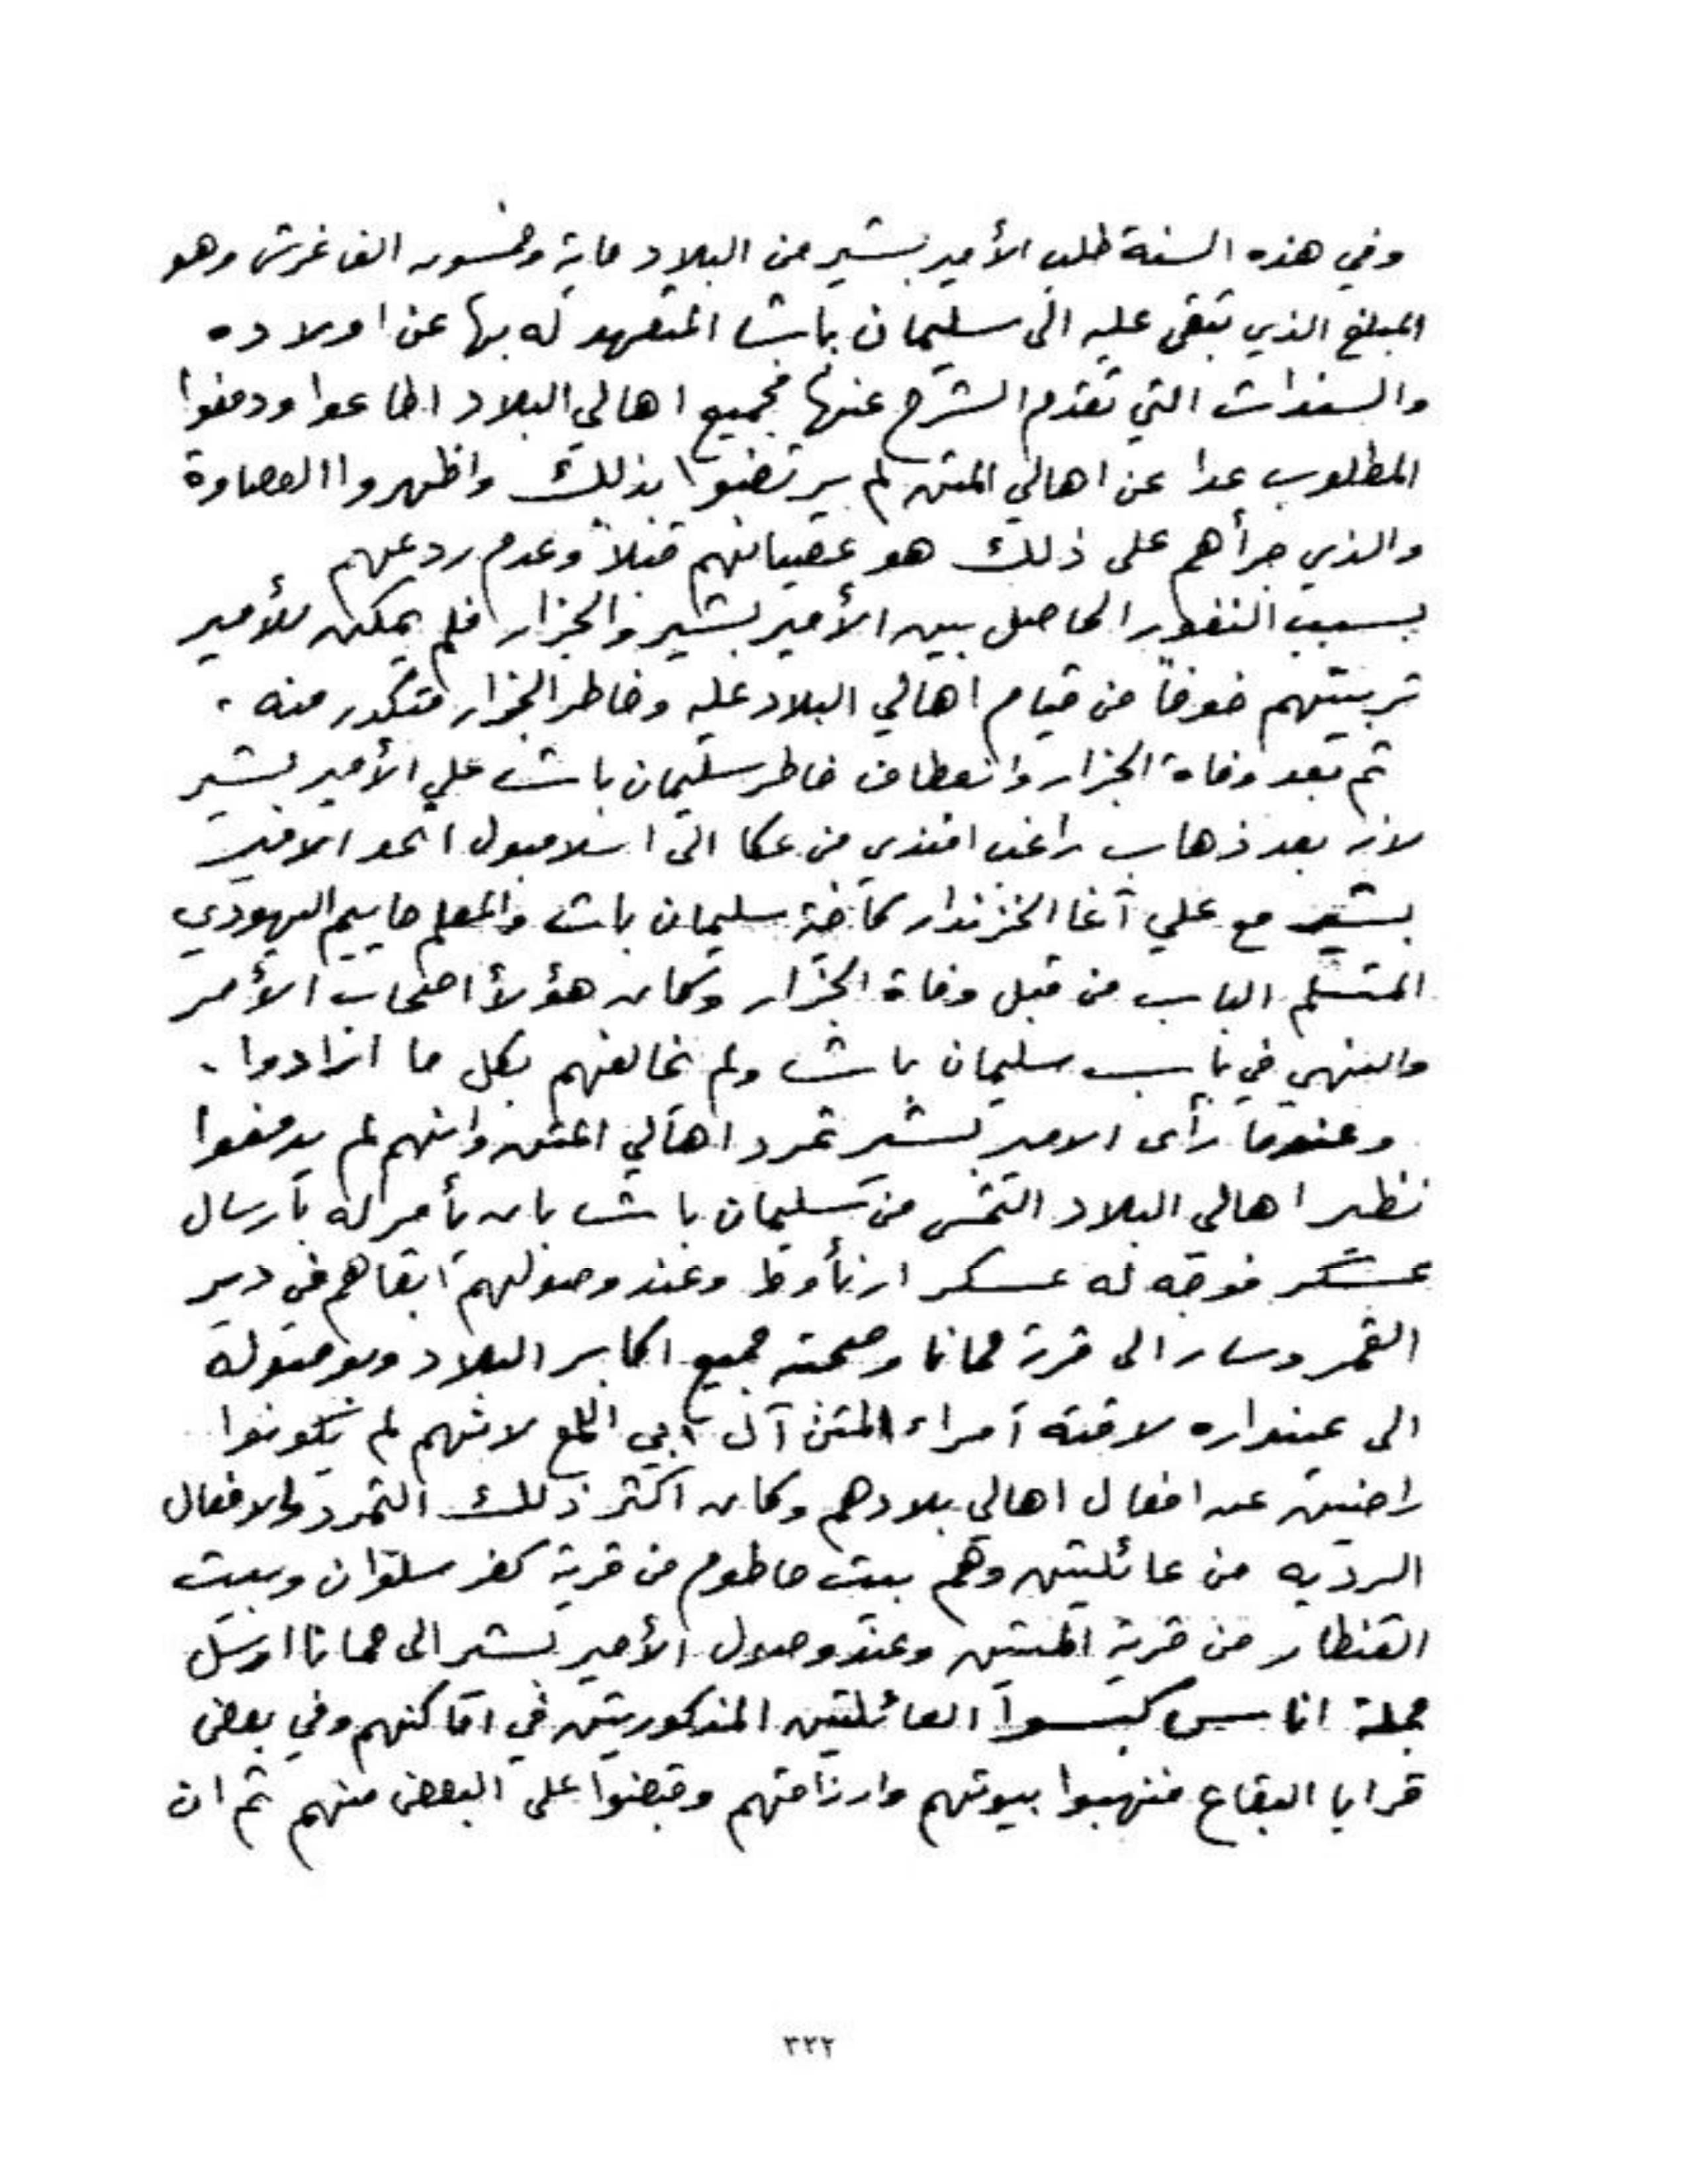 وفي هذه السنة طلب الأمير بشير من البلاد ماية وخمسون الف غرش وهو
المبلغ الذي تبقى عليه الى سليمان باشا المتعهد له بها عن اولاده
والسندات التي تقدم الشرح عنها فجميع اهالي البلاد اطاعوا ودفعوا
المطلوب عدا عن اهالي المتن لم يرتضوا بذلك واظهروا العصاوة
والذي جرأهم على ذلك هو عصيانهم قبلاً وعدم ردعهم
بسبب النفور الحاصل بين الأمير بشير والجزار فلم يمكن للأمير
تربيتهم خوفاً من قيام اهالي البلاد عليه وخاطر الجزار متكدر منه .
ثم بعد وفاة الجزار وانعطاف خاطر سليمان باشا على الأمير بشير
لانه بعد ذهاب راغب افندي من عكا الى اسلامبول اتحد الامير
بشير مع علي آغا الخزندار كاخية سليمان باشا والمعلم حاييم اليهودي
المتسلم الباب من قبل وفاة الجزار وكان هؤلأ اصحاب الأمر
والنهي في باب سليمان باشا ولم يخالفهم بكل ما ارادوا .
وعندما رأى الامير بشير تمرد اهالي المتن وانهم لم يدفعوا
نظير اهالي البلاد التمس من سليمان باشا بان يأمر له بارسال
عسكر فوجّه له عسكر ارنأوط وعند وصولهم ابقاهم في دير
القمر وسار الى قرية حمانا وصحبته جميع اكابر البلاد وبوصوله
الى عينداره لاقته أمراء المتن آل ابي اللمع لانهم لم يكونوا
راضيين عن افعال اهالي بلادهم وكان اكثر ذلك التمرد والافعال
الرديه من عائلتين وهم بيت حاطوم من قرية كفر سلوان وبيت
القنطار من قرية المتين وعند وصلال الأمير بشير الى حمانا ارسل
جملة اناس كبسوا العائلتين المذكورتين في اماكنهم وفي بعض
قرايا البقاع فنهبوا بيوتهم وارزاقهم وقبضوا على البعض منهم ثم ان
٣٢٢